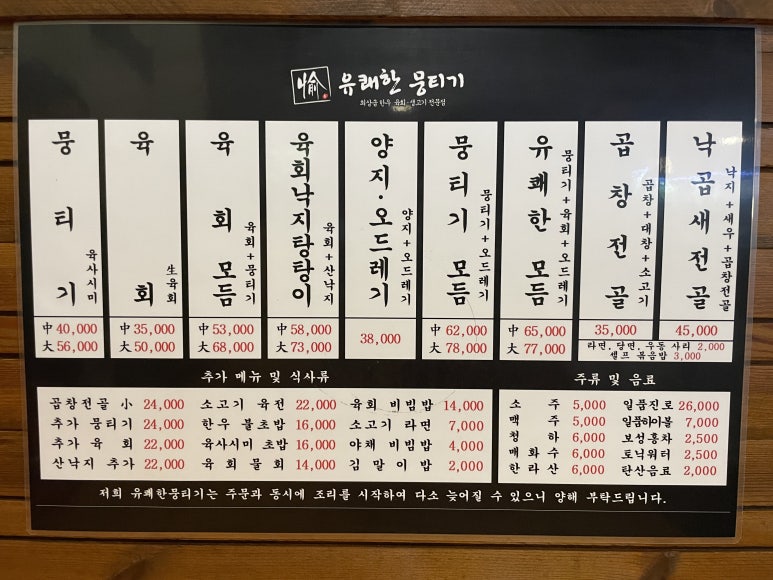 愉 유쾌한 뭉티기
최상급 한우 육회·생고기 전문점
뭉티기 육사시미
中 40,000
大 56,000
육회 生육회
中 35,000
大 50,000
육회 모듬 육회+뭉티기
中 53,000
大 68,000
육회낙지탕탕이 육회+산낙지
中 58,000
大 73,000
양지·오드레기 양지+오드레기
38,000
뭉티기 모듬 뭉티기+오드레기
中 62,000
大 78,000
유쾌한 모듬 뭉티기+육회+오드레기
中 65,000
大 77,000
곱창전골 곱창+대창+소고기
35,000
낙곱새전골 낙지+새우+곱창전골
45,000
라면, 당면, 우동 사리 2,000
셀프 볶음밥 3,000
추가 메뉴 및 식사류
곱창전골 小 24,000
추가 뭉티기 24,000
추가 육회 22,000
산낙지 추가 22,000
소고기 육전 22,000
한우 불초밥 16,000
육사시미 초밥 16,000
육회 물회 14,000
육회 비빔밥 14,000
소고기 라면 7,000
야채 비빔밥 4,000
김말이밥 2,000
주류 및 음료
소주 5,000
맥주 5,000
청하 6,000
매화수 6,000
한라산 6,000
일품진로 26,000
일품하이볼 7,000
보성홍차 2,500
토닉워터 2,500
탄산음료 2,000
저희 유쾌한뭉티기는 주문과 동시에 조리를 시작하여 다소 늦어질 수 있으니 양해 부탁드립니다.